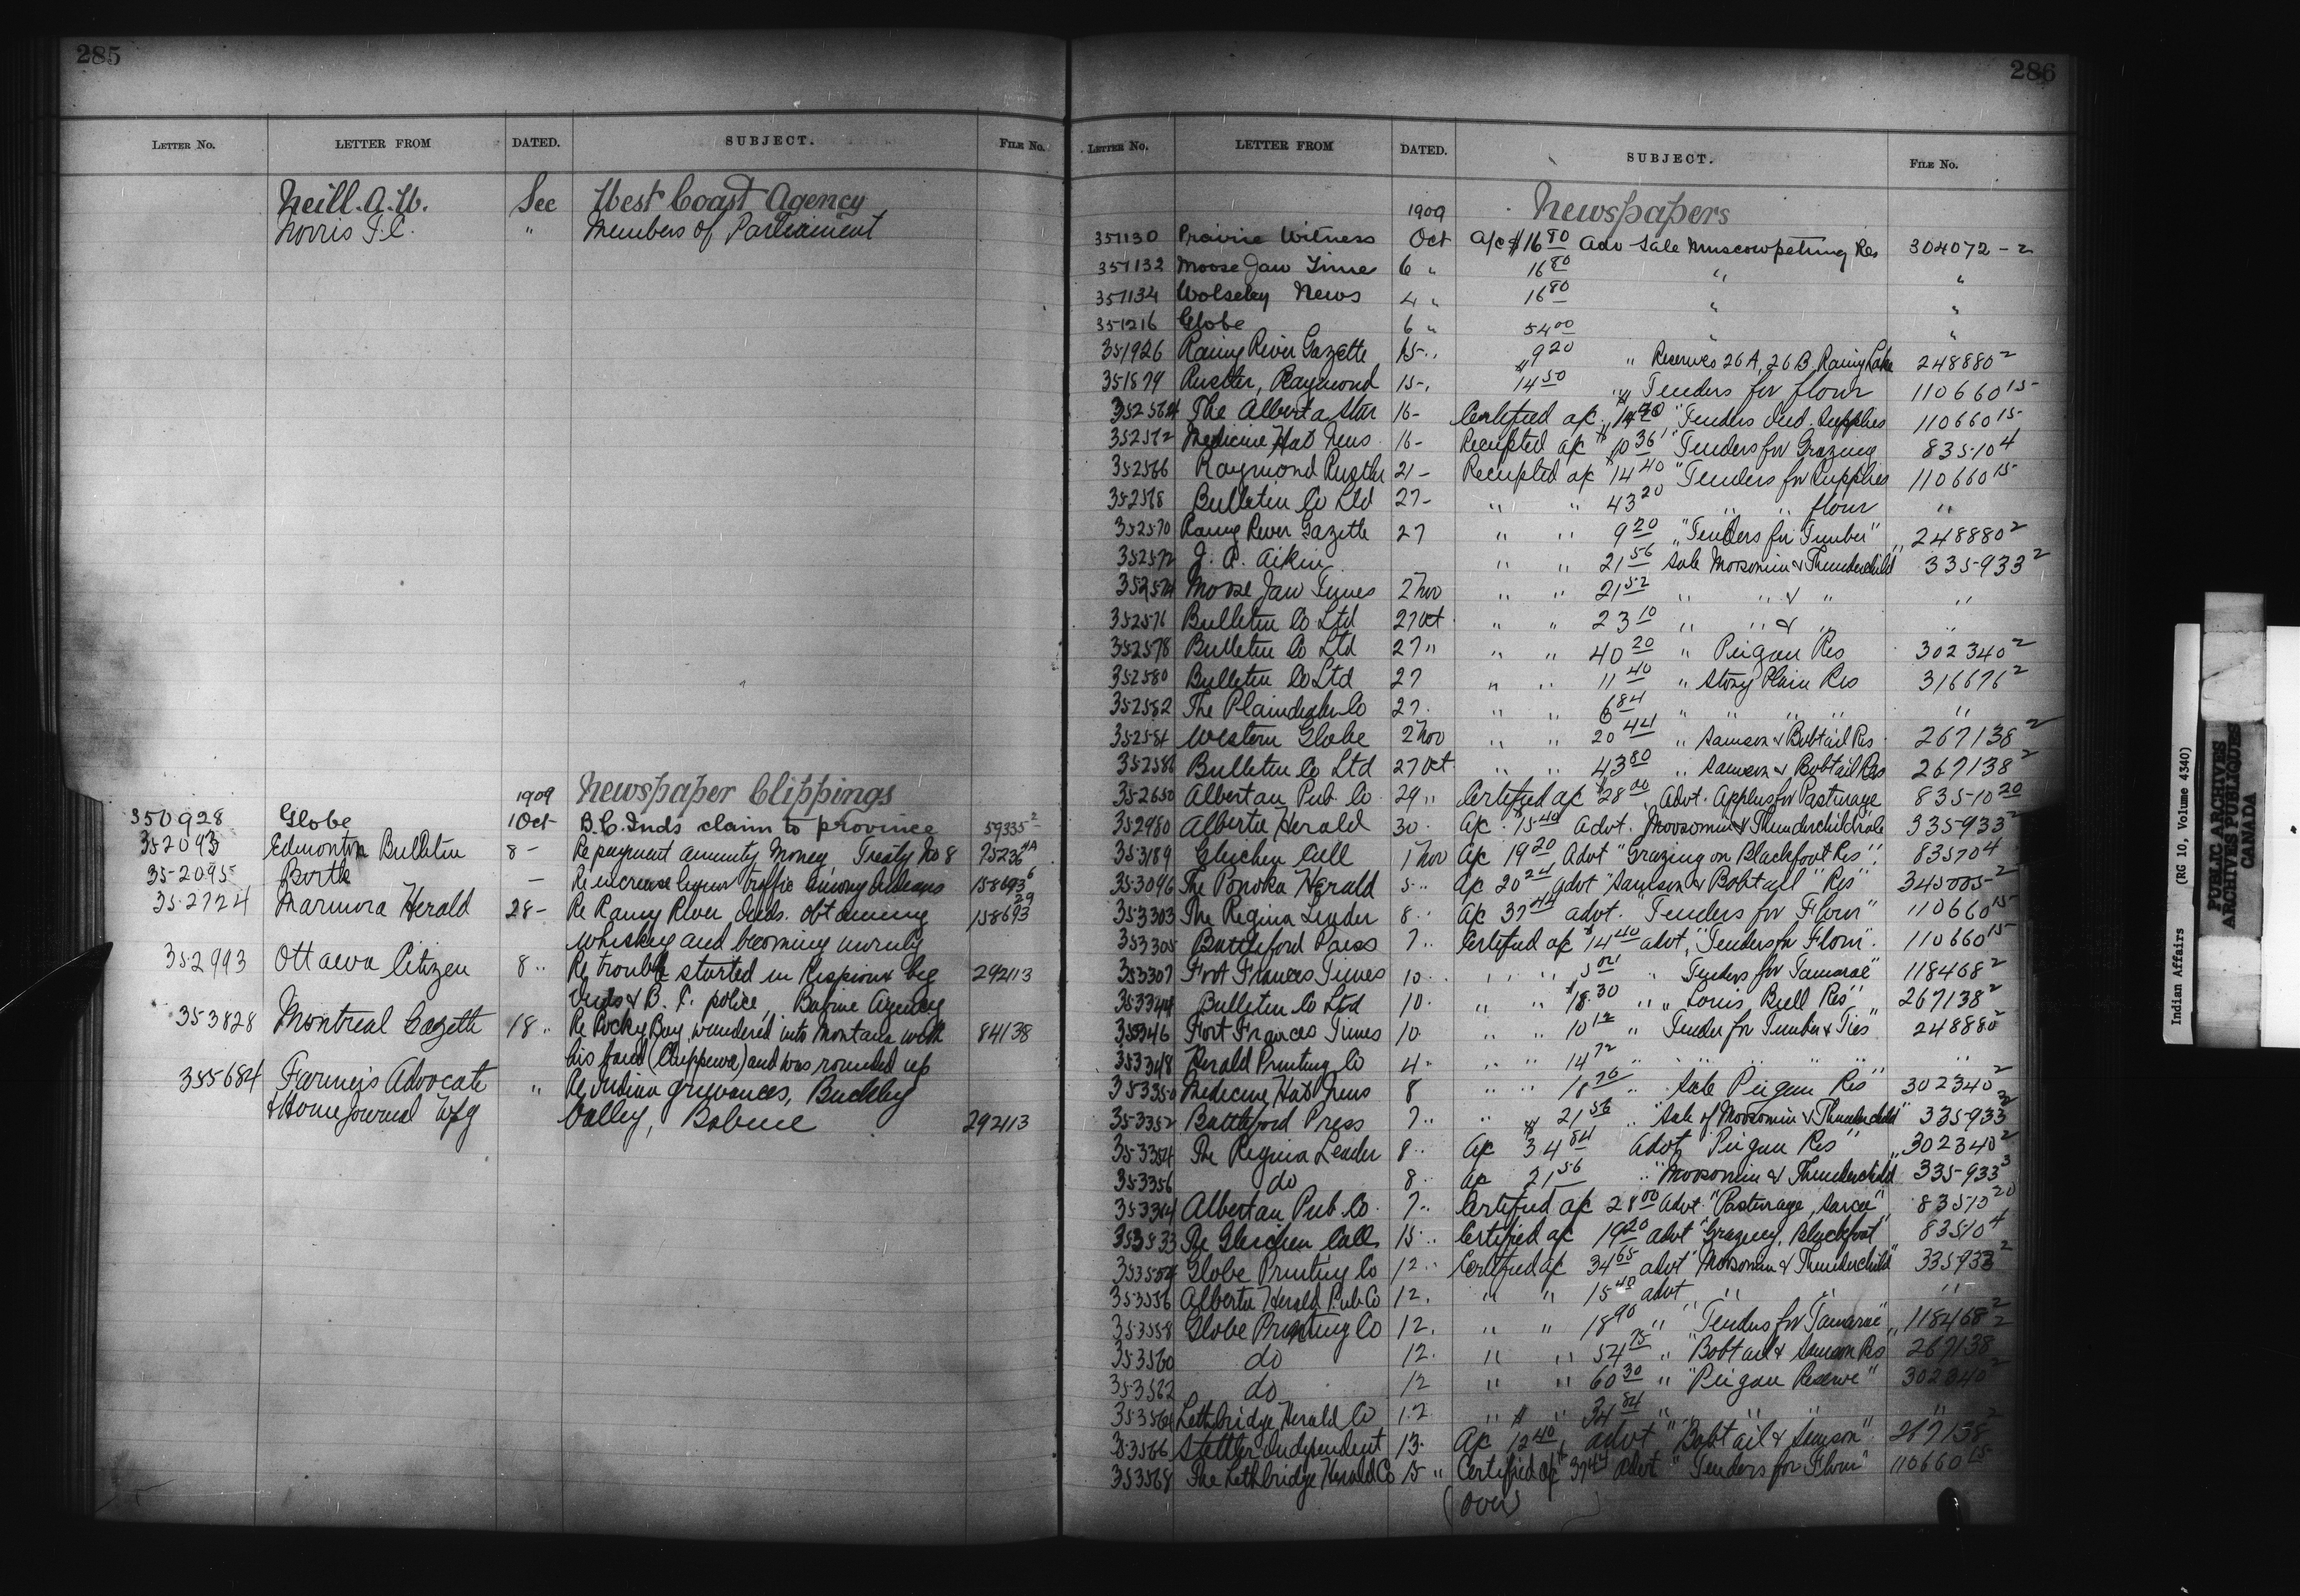 285
LETTER NO. LETTER FROM DATED. SUBJECT. FILE NO.
Neill. A. W. See West Coast Agency
Norris T. C. " Members of Parliament
1909 Newspaper Clippings
350928 Globe 1 Oct B.C. Inds claim to province 59335 2
352093 Edmonton Bulletin 8 - Re payment annuity money Treaty No 8 75236 4A
352095 Birtle - Re increase liquor traffic among Indians 158693 6
352724 Marmora Herald 28 - Re Rainy River Inds. obtaining 158693 29
whiskey and becoming unruly
352993 Ottawa Citizen 8 " Re trouble started in Kispioux beg 292113
Inds & B. C. police, Babine Agency
353828 Montreal Gazette 18 " Re Rocky Boy wandered into Montana with 84138
his band (Chippewa) and was rounded up
355684 Farmers Advocate " Re Indian grievances, Buckley
& Home Journal Wpg Valley, Babine 292113
286
LETTER NO. LETTER FROM DATED. SUBJECT. FILE NO.
1909 Newspapers
351130 Prairie Witness Oct A/c $16 80 Adv Sale Muscowpetung Res 304072-2
351132 Moose Jaw Time 6 " 16 80 " "
351134 Wolseley News 4 " 16 80 " "
351216 Globe 6 " 54 00 " "
351926 Rainy River Gazette 15 " $9 20 " Reserves 26A, 26B Rainy Lake 248880 2
351879 Rustler, Raymond 15 " 14 50 " Tenders for flour 110660 15
352564 The Alberta Star 16 - Certified a/c $14 40 "Tenders Ind. Supplies 110660 15
352572 Medicine Hat News 16 - Receipted a/c $10 36 "Tenders for Grazing 83510 4
352566 Raymond Rustler 21 - Receipted a/c $14 40 "Tenders for Supplies 110660 15
352568 Bulletin Co Ltd 27 - " " 43 20 " " flour "
352570 Rainy River Gazette 27 " " 9 20 "Tenders for Timber" 248880 2
352572 J. P. Aikin " " 21 56 Sale Moosomin & Thunderchild" 335933 2
352574 Moose Jaw Times 2 Nov " " 21 52 " " & " "
352576 Bulletin Co Ltd 27 Oct " " 23 10 " " & " "
352578 Bulletin Co Ltd 27 " " " 40 20 " Peigan Res 302340 2
352580 Bulletin Co Ltd 27 " " 11 40 " Stony Plain Res 316676 2
352582 The Plaindealer Co 27 . " " 6 84 " " " " "
352584 Western Globe 2 Nov " " 20 44 " Samson & Bobtail Res 267138 2
352586 Bulletin Co Ltd 27 Oct " " 43 80 " Samson & Bobtail Res 267138 2
352650 Albertan Pub. Co 29 " Certified a/c $28 00 Advt. Applns for Pasturage 83510 20
352980 Alberta Herald 30 . A/c . 15 40 Advt. Moosomin & Thunderchild sale 335933 2
353189 Gleichen Call 1 Nov A/c 19 20 Advt "Grazing on Blackfoot Res" 83510 4
353096 The Ponoka Herald 5 " A/c 20 24 advt "Samson & Bobtail" Res" 345005 2
353303 The Regina Leader 8 " A/c 37 44 advt. "Tenders for Flour" 110660 15
353305 Battleford Press 7 " Certified a/c $14 40 advt, "Tenders for Flour". 110660 15
353307 Fort Frances Times 10 " " " " Tenders for Tamarac" 118468 2
353344 Bulletin Co Ltd 10 . " " $18.30 " " Louis Bull Res" 267138 2
353346 Fort Frances Times 10 " " 10 12 " Tender for Timber & Ties" 248880 2
353348 Herald Printing Co 4 " " " 14 72 " " " " "
353350 Medicine Hat News 8 " " 18 76 " Sale Peigan Res" 302340 2
353352 Battleford Press 7 " " $21 56 " "Sale of Moosomin & Thunderchild" 335933 2
353354 The Regina Leader 8 " A/c 34 84 Advt Peigan Res" 302340 2
353356 do 8 " A/c 21 56 " Moosomin & Thunderchild 335933 3
353364 Albertan Pub. Co. 7 " Certified a/c 28 00 advt. "Pasturage, Sarcee" 83510 20
353533 The Gleichen Call 15 " Certified a/c 19 20 advt "Grazing, Blackfoot" 83510 4
353554 Globe Printing Co 12 " Certified a/c 34 65 advt "Moosomin & Thunderchild" 335933 2
353556 Alberta Herald Pub Co 12 . " " 15 40 advt " " "
353558 Globe Printing Co 12 . " " 18 90 " "Tenders for Tamarac" 118468 2
353560 do 12 . " " 54 75 " "Bobtail & Samson Res 267138 2
353562 do 12 " " 60 30 " "Peigan Reserve" 302340 2
353564 Lethbridge Herald Co 12 " " 34 84 " " " "
353566 Stettler Independent 13 . A/c 12 40, advt "Bobtail & Samson" 267138 2
353568 The Lethbridge Herald Co 15 " Certified a/c 37 44 advt "Tenders for Flour" 110660 15
(Over)
Indian Affairs (RG 10, Volume 4340)
PUBLIC ARCHIVES
ARCHIVES PUBLIQUES
CANADA